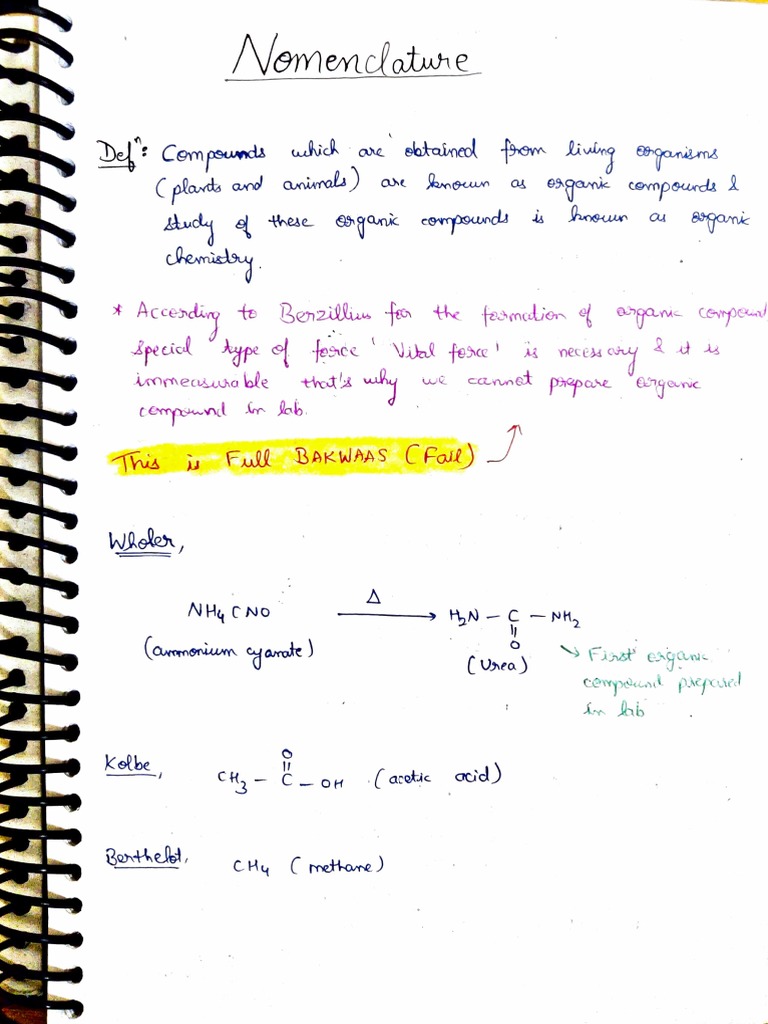 Nomenclature
Defⁿ: Compounds which are obtained from living organisms
(plants and animals) are known as organic compounds &
study of these organic compounds is known as organic
chemistry.
* According to Berzillius for the formation of organic compound
special type of force 'Vital force' is necessary & it is
immeasurable that's why we cannot prepare organic
compound in lab.
This is Full BAKWAAS (Fail)
Wholer,
NH4CNO →Δ H2N – C – NH2
||
O
(ammonium cyanate) (Urea)
↘ First organic
compound prepared
in lab
O
||
Kolbe, CH3 – C – OH (acetic acid)
Berthelot, CH4 (methane)